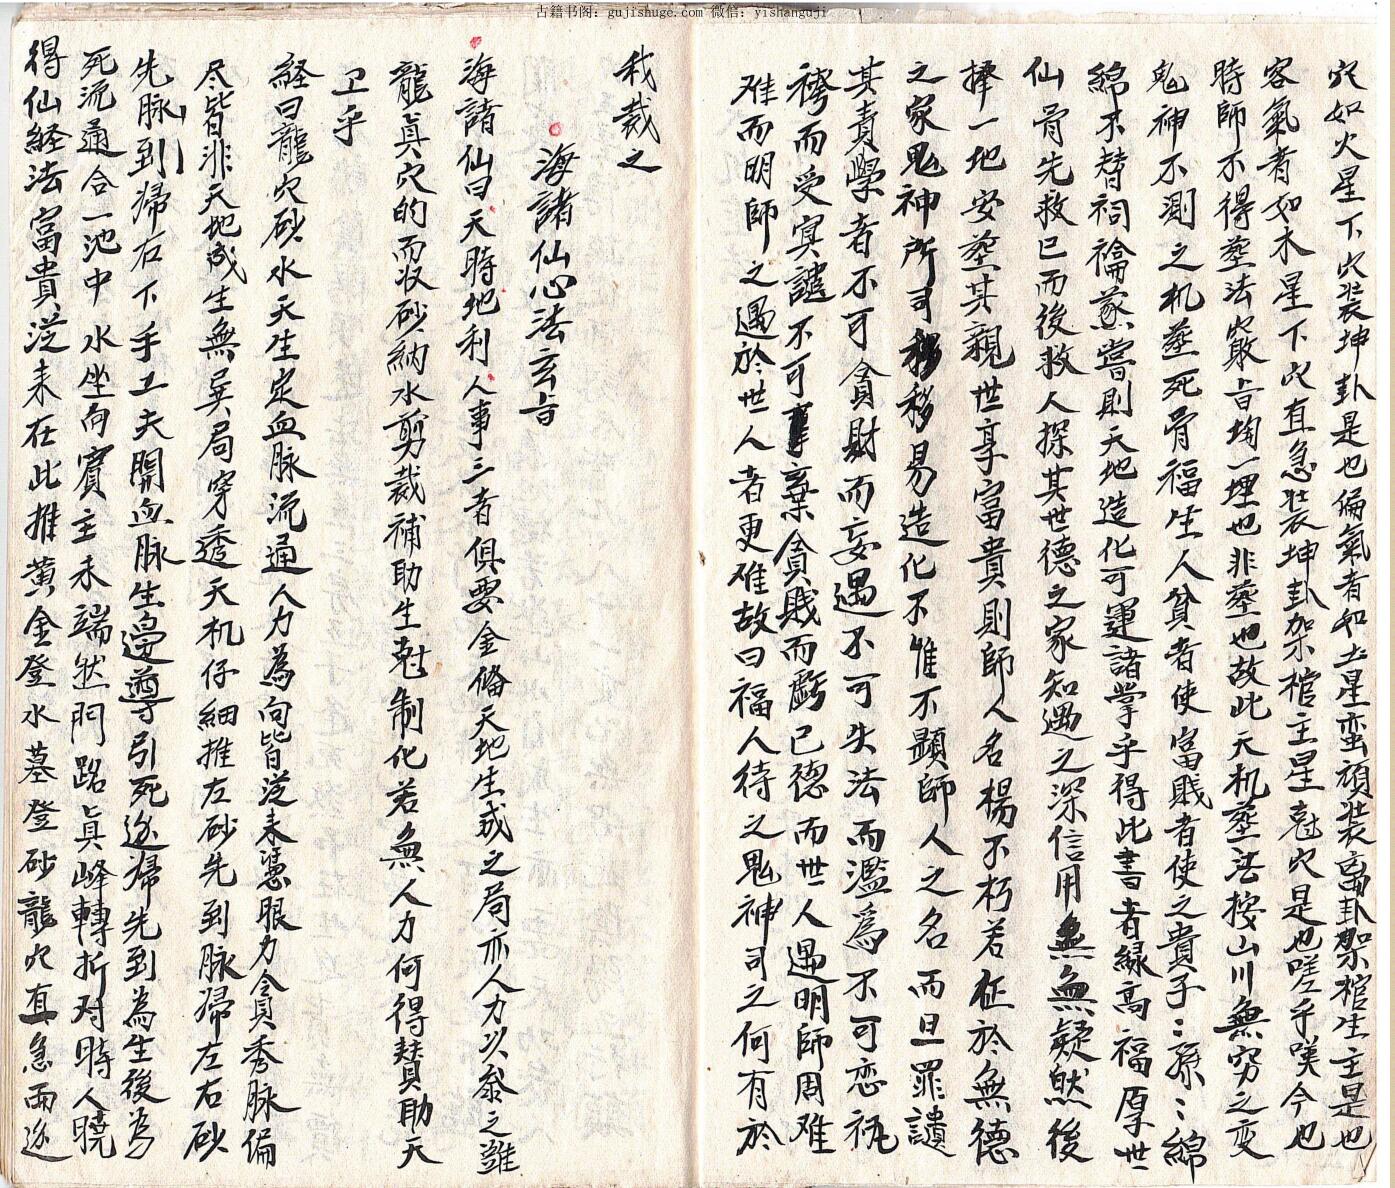 古籍书阁：gujishuge.com 微信：yishanguji
穴如火星下穴装坤卦是也偏氣者如土星蛮頑装离卦架棺生主是也
容氣者如木星下穴直急装坤卦架棺主星尅穴是也嗟乎嘆今也
時師不得塟法竅旨掏一埋也非塟也故此天机塟法按山川無窮之变
鬼神不測之机塟死骨福生人貧者使富賎者使之貴子〻孫〻綿
綿不替祠禴蒸嘗則天地造化可運諸掌乎得此書者緑高福厚世
仙骨先救已而後救人探其世德之家知遇之深信用無無疑然後
捧一地安塟其親世享富貴則師人名楊不朽若枉於無德
之家鬼神所司移移易造化不惟不顯師人之名而且罪譴
其責學者不可貪財而妄遇不可失法而濫為不可恋
袴而受冥譴不可事棄貪賎而虧已德而世人遇明師固难
难而明師之遇於世人者更难故曰福人待之鬼神司之何有於
我裁之
海諸仙心法玄旨
海諸仙曰天時地利人事三者俱要金俻天地生成之局亦人力以参之雖
龍真穴的而收砂納水剪裁補助生尅制化若無人力何得賛助天
工乎
経曰龍穴砂水天生定血脉流通人力為向皆従来憑眼力会貟秀脉偏
尽皆非天地成生無異局穿透天机仔細推左砂先到脉㷌左右砂
先脉到㷌右下手工夫開血脉生邉遵引死迯㷌先到為生後為
死流通合一池中水坐向賓主禾端然門路真峰轉折对時人曉
得仙経法富貴従来在此推黄金登水墓登砂龍穴直急而迯